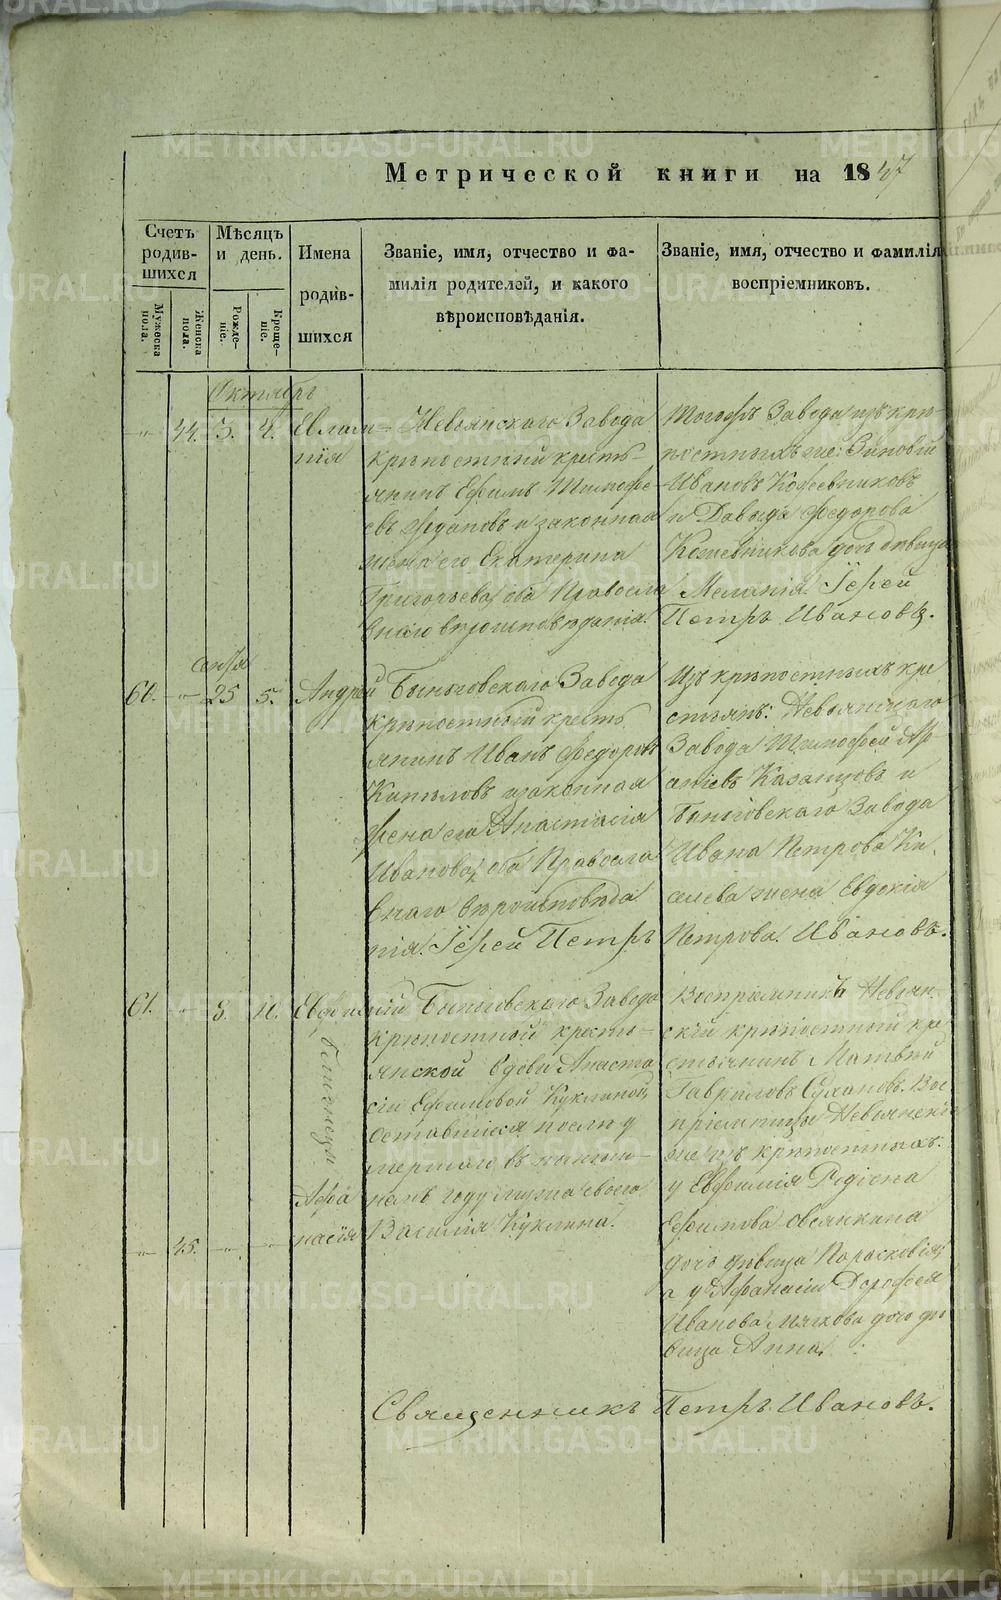 Метрической книги на 1847
Счетъ родив-шихся
Мѣсяцъ и день.
Имена родив-шихся
Званіе, имя, отчество и фа-
милія родителей, и какого
вѣроисповѣданія.
Званіе, имя, отчество и фамилія
воспріемниковъ.
Мужеска пола.
Женска пола.
Рожде-ніе.
Креще-ніе.
Октябрь
44. 3. 4. Евлам-
пія
Невьянскаго Завода
крѣпостный кресть-
янинъ Ефимъ Тимофе-
евъ и законная
жена его Екатерина
Григорьева, оба Правосла
внаго вѣроисповѣданія.
Тогожъ Завода изъ крѣ-
постныхъ же: Зиновій
Ивановъ Кожевниковъ
и Давыда Федорова
Кожевникова дочь дѣвица
Меланія. Іерей
Петръ Ивановъ.
сентя
60. 25 5. Андрей
Быньговскаго Завода
крѣпостный кресть
янинъ Иванъ Федоровъ
и законная
жена его Анастасія
Иванова, оба Правосла
внаго вѣроисповѣда
нія. Іерей Петръ
Изъ крѣпостныхъ кре
стьянъ: Невьянскаго
Завода Тимофей
Казанцовъ и
Быньговскаго Завода
Ивана Петрова Ки
селева жена Евдокія
Петрова. Ивановъ.
61. 8. 11. Евфимій
близнецы
Быньговскаго Завода
крѣпостной кресть-
янской вдовы Анаста
сіи Ефимовой Куклиной,
оставшіеся послѣ у
мершаго въ нынѣш-
немъ году мужа своего
Василія Куклина.
45. Афа
насія
Воспріемники Невьян-
скій крѣпостный кре
стьянинъ Матвей
Гавриловъ Сухановъ. Вос
пріемницы Невьянскія
же изъ крѣпостныхъ:
у Евфимія Родіона
Ефимова Овсянкина
дочь дѣвица Парасковія,
а у Афанасіи Дорофея
Иванова Мягкова дочь дѣ
вица Анна.
Священникъ Петръ Ивановъ.
METRIKI.GASO-URAL.RU